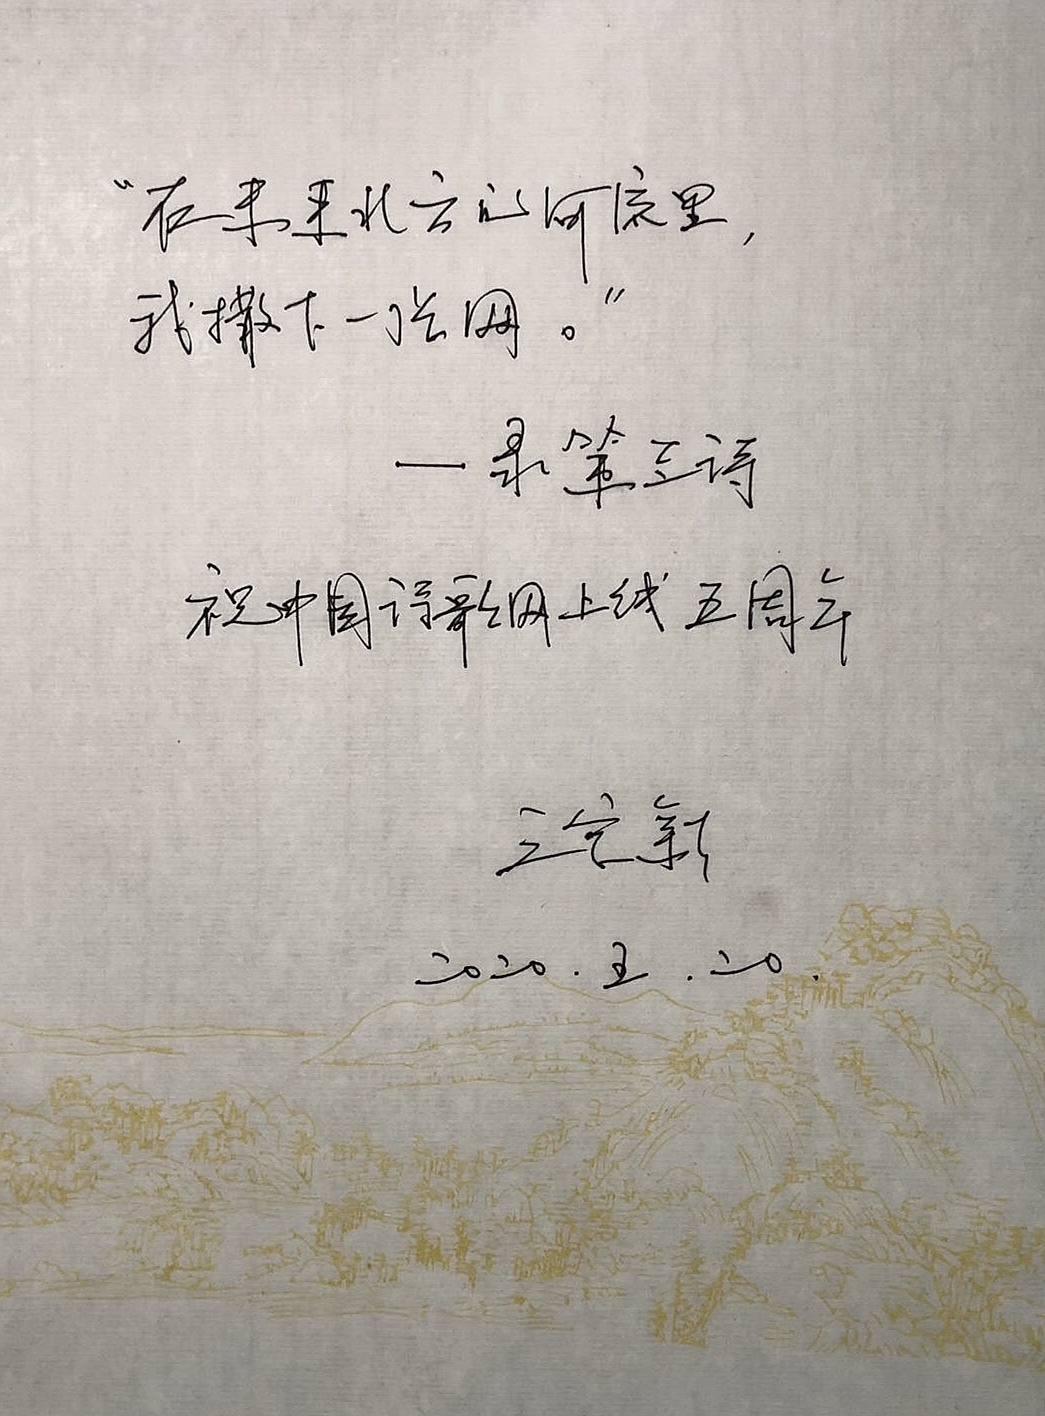 “在未来北方的河流里，
我撒下一张网。”
— 录策兰诗
祝中国诗歌网上线五周年
王家新
2020.五.20.